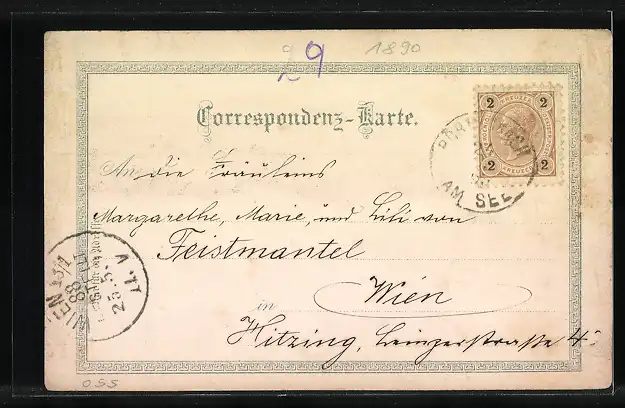 29
1890
Correspondenz-Karte.
2 KREUZER 2
2 KREUZER 2
AM SEE
An die Fräuleins
Margarethe, Marie, und Lili von
Feistmantel
Wien
in
Hitzing, Lainzerstraße 4.
WIEN 13/1
88
25.5.
11.V
055